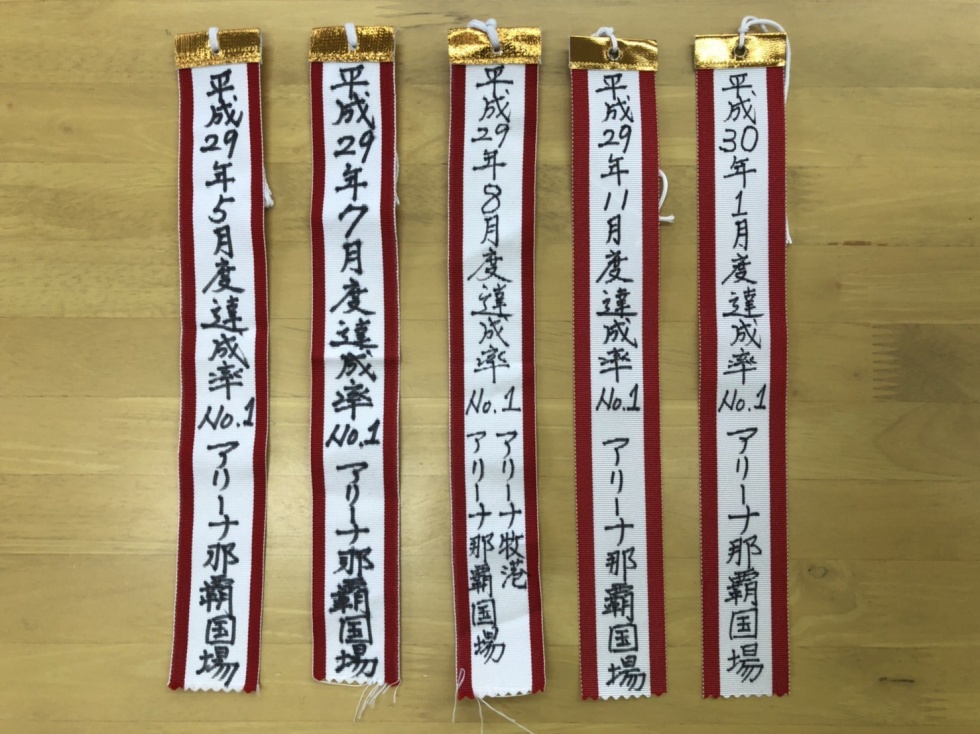 平成29年5月度達成率No.1 アリーナ那覇国場
平成29年7月度達成率No.1 アリーナ那覇国場
平成29年8月度達成率No.1
アリーナ牧港
アリーナ那覇国場
平成29年11月度達成率No.1 アリーナ那覇国場
平成30年1月度達成率No.1 アリーナ那覇国場